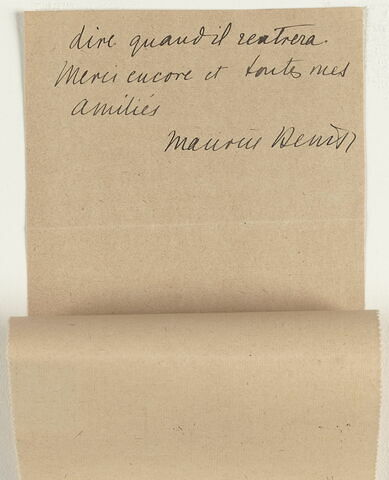 dire quand il rentrera.
Merci encore et toutes mes
amitiés
Maurice Denis